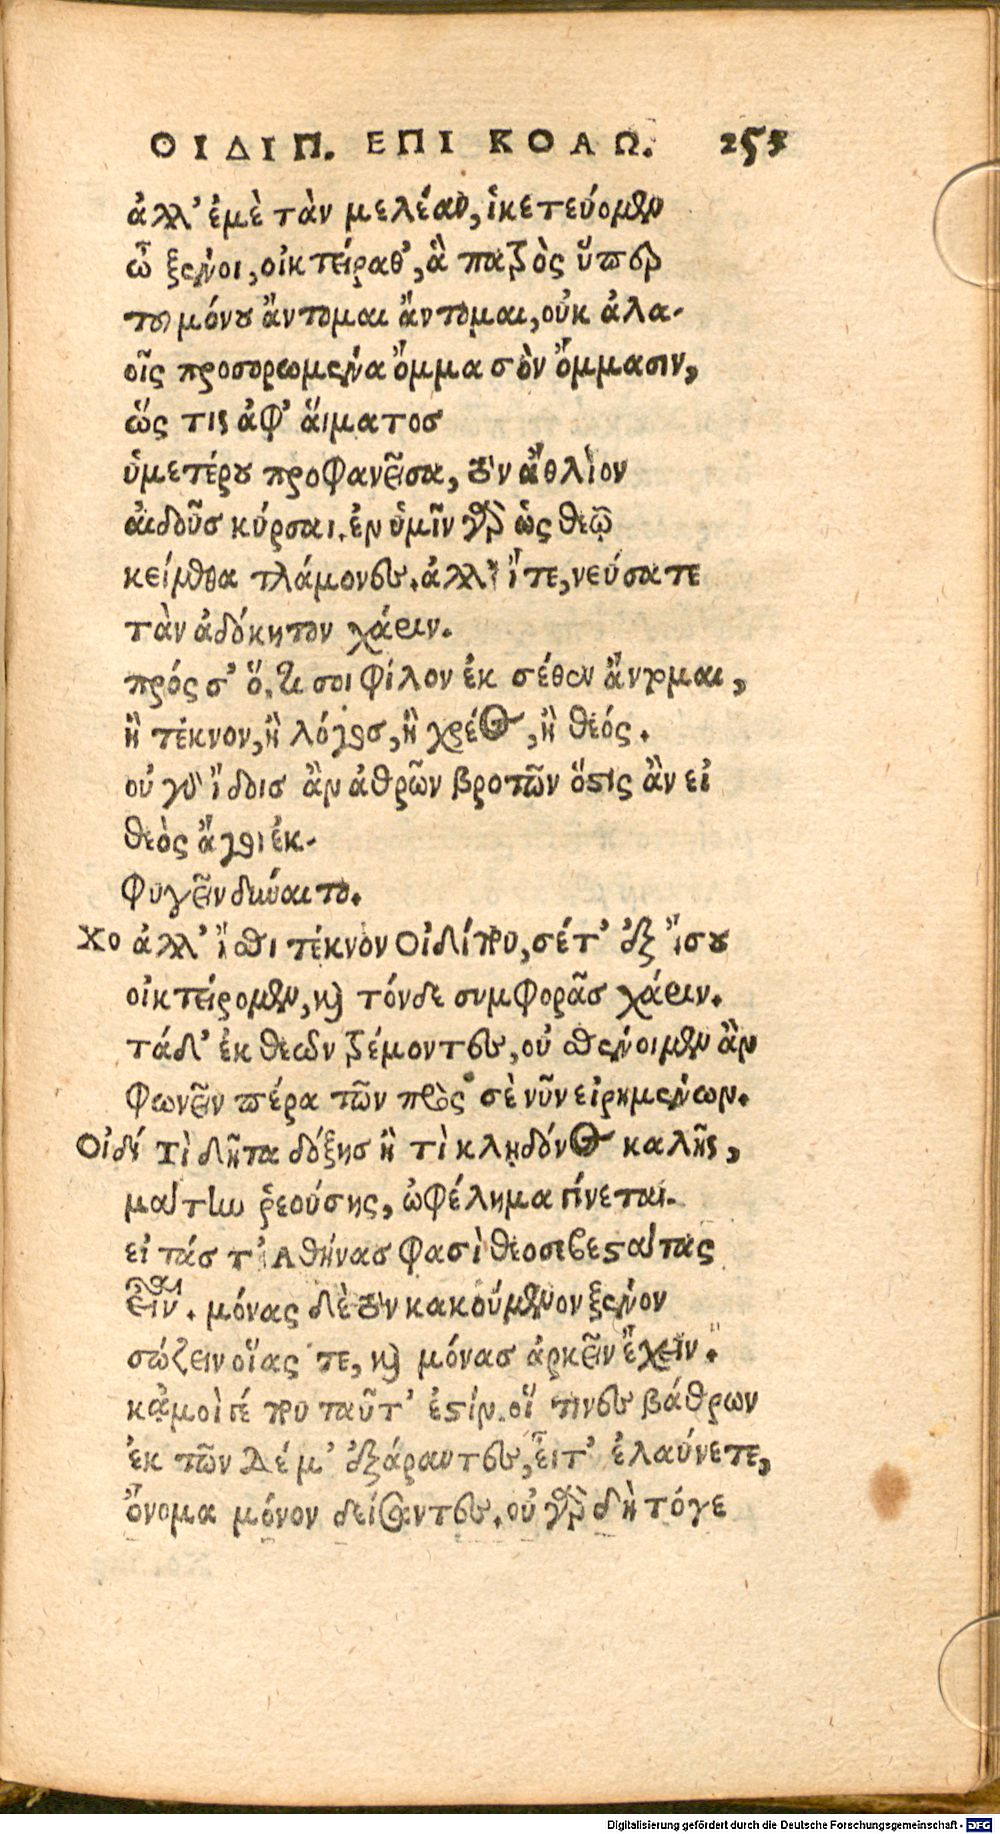 ΟΙΔΙΠ. ΕΠΙ ΚΟΛΩ. 253
ἀλλ' ἐμὲ τὰν μελέαν, ἱκετεύομεν
ὦ ξένοι, οἰκτείραθ', ἃ πατρὸς ὕπερ
του μόνου ἄντομαι ἄντομαι, οὐκ ἀλα-
οῖς προσορωμένα ὄμμα σὸν ὄμμασιν,
ὥς τις ἀφ' ἅιματοσ
ὑμετέρου προφανεῖσα, τὸν ἄθλιον
αἰδοῦσ κύρσαι. ἐν ὑμῖν γὰρ ὡς θεῷ
κείμεθα τλάμονες. ἀλλ' ἴτε, νεύσατε
τὰν ἀδόκητον χάριν.
πρός σ' ὅ, τι σοι φίλον ἐκ σέθεν ἄντομαι,
ἢ τέκνον, ἢ λόγοσ, ἢ χρέος, ἢ θεός.
οὐ γὰρ ἴδοισ ἂν ἀθρῶν βροτῶν ὅστις ἂν εἰ
θεὸς ἄγοι ἐκ-
φυγεῖν δύναιτο.
Χο ἀλλ' ἴσθι τέκνον Οἰδίπου, σέ τ' ἐξ ἴσου
οἰκτείρομεν, καὶ τόνδε συμφορᾶσ χάριν.
τὰ δ' ἐκ θεῶν τρέμοντες, οὐ σθένοιμεν ἂν
φωνεῖν πέρα τῶν πρὸς σὲ νῦν εἰρημένων.
Οἰδί Τί δῆτα δόξησ ἢ τί κληδόνος καλῆς,
μάτην ῥεούσης, ὠφέλημα γίνεται.
εἰ τάς τ' Ἀθήνασ φασὶ θεοσεβεστάτας
εἶναι. μόνας δὲ τὸν κακούμενον ξένον
σώζειν οἵας τε, καὶ μόνασ ἀρκεῖν ἔχειν.
κἀμοί γέ που ταῦτ' ἐστίν. οἵ τινες βάθρων
ἐκ τῶν δέ μ' ἐξάραντες, εἶτ' ἐλαύνετε,
ὄνομα μόνον δείσαντες. οὐ γὰρ δὴ τόγε
Digitalisierung gefördert durch die Deutsche Forschungsgemeinschaft - DFG